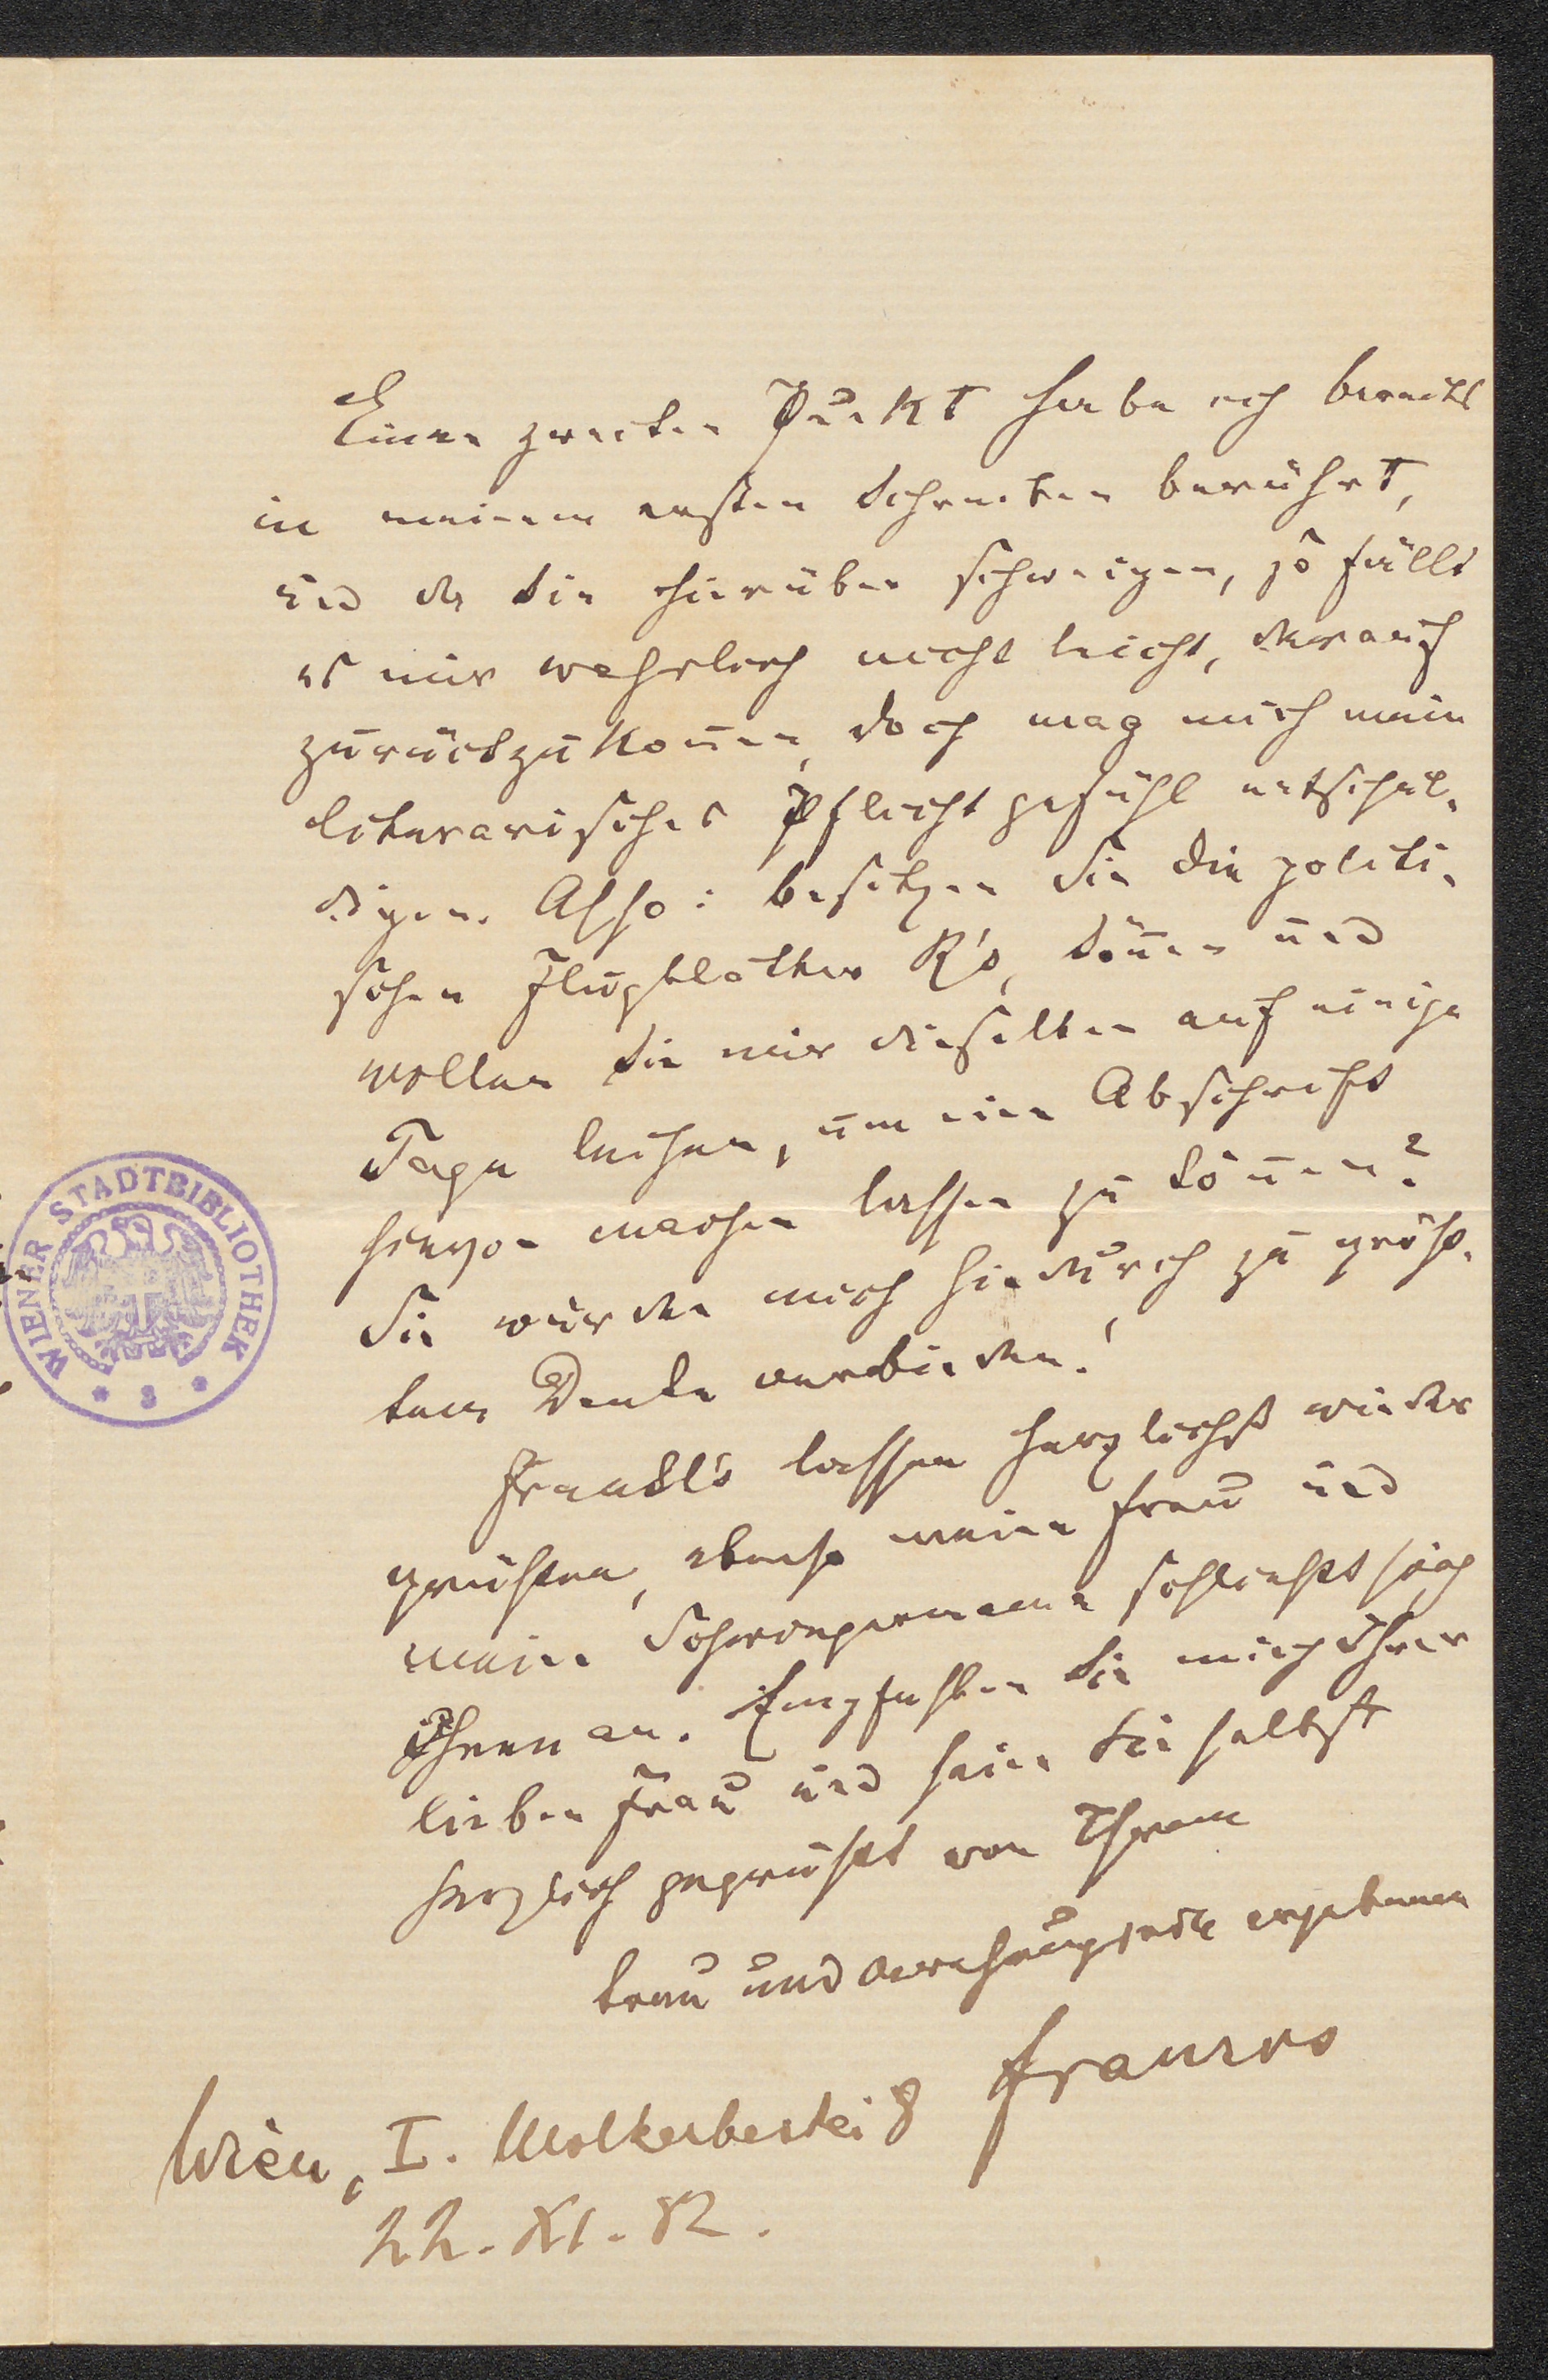 Einen zweiten Punkt habe ich bereits
in meinem ersten Schreiben berührt,
und da Sie hierüber schweigen, so fällt
es mir wahrlich nicht leicht, darauf
zurückzukom̅en, doch mag mich mein
literarisches Pflichtgefühl entschul-
digen. Also: besitzen Sie die politi-
schen Flugblätter R's, kön̅en und
wollen Sie mir dieselben auf einige
Tage leihen, um eine Abschrift
hievon machen lassen zu kön̅en?
Sie würden mich hiedurch zu größ-
tem Danke verbinden!
Frankl's lassen herzlichst wieder
grüßen, ebenso meine Frau und
meine Schwiegermama schließt sich
Ihnen an. Empfehlen Sie mich Ihrer
lieben Frau und seien Sie selbst
herzlich gegrüßt von Ihrem
treu und verehrungsvoll ergebenen
Franzos
Wien, I. Mölkerbastei 8
22. XI. 82.
WIENER STADTBIBLIOTHEK
* 8 *